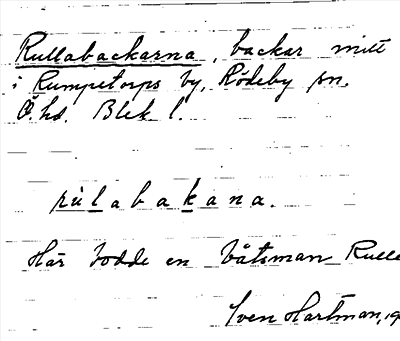 Rullabackarna, backar mitt
i Rumpetorps by, Rödeby sn.
Ö. hd. Blek l.
rùlabakana.
Här bodde en båtsman Rulle
Sven Hartman, 19